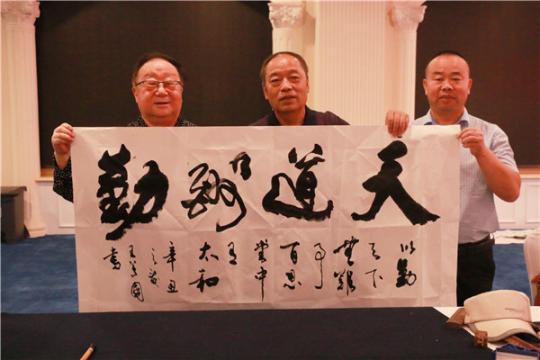 天道酬勤
以勤
天下
無難
事
百忍
堂中
有
太和
辛丑
國
書